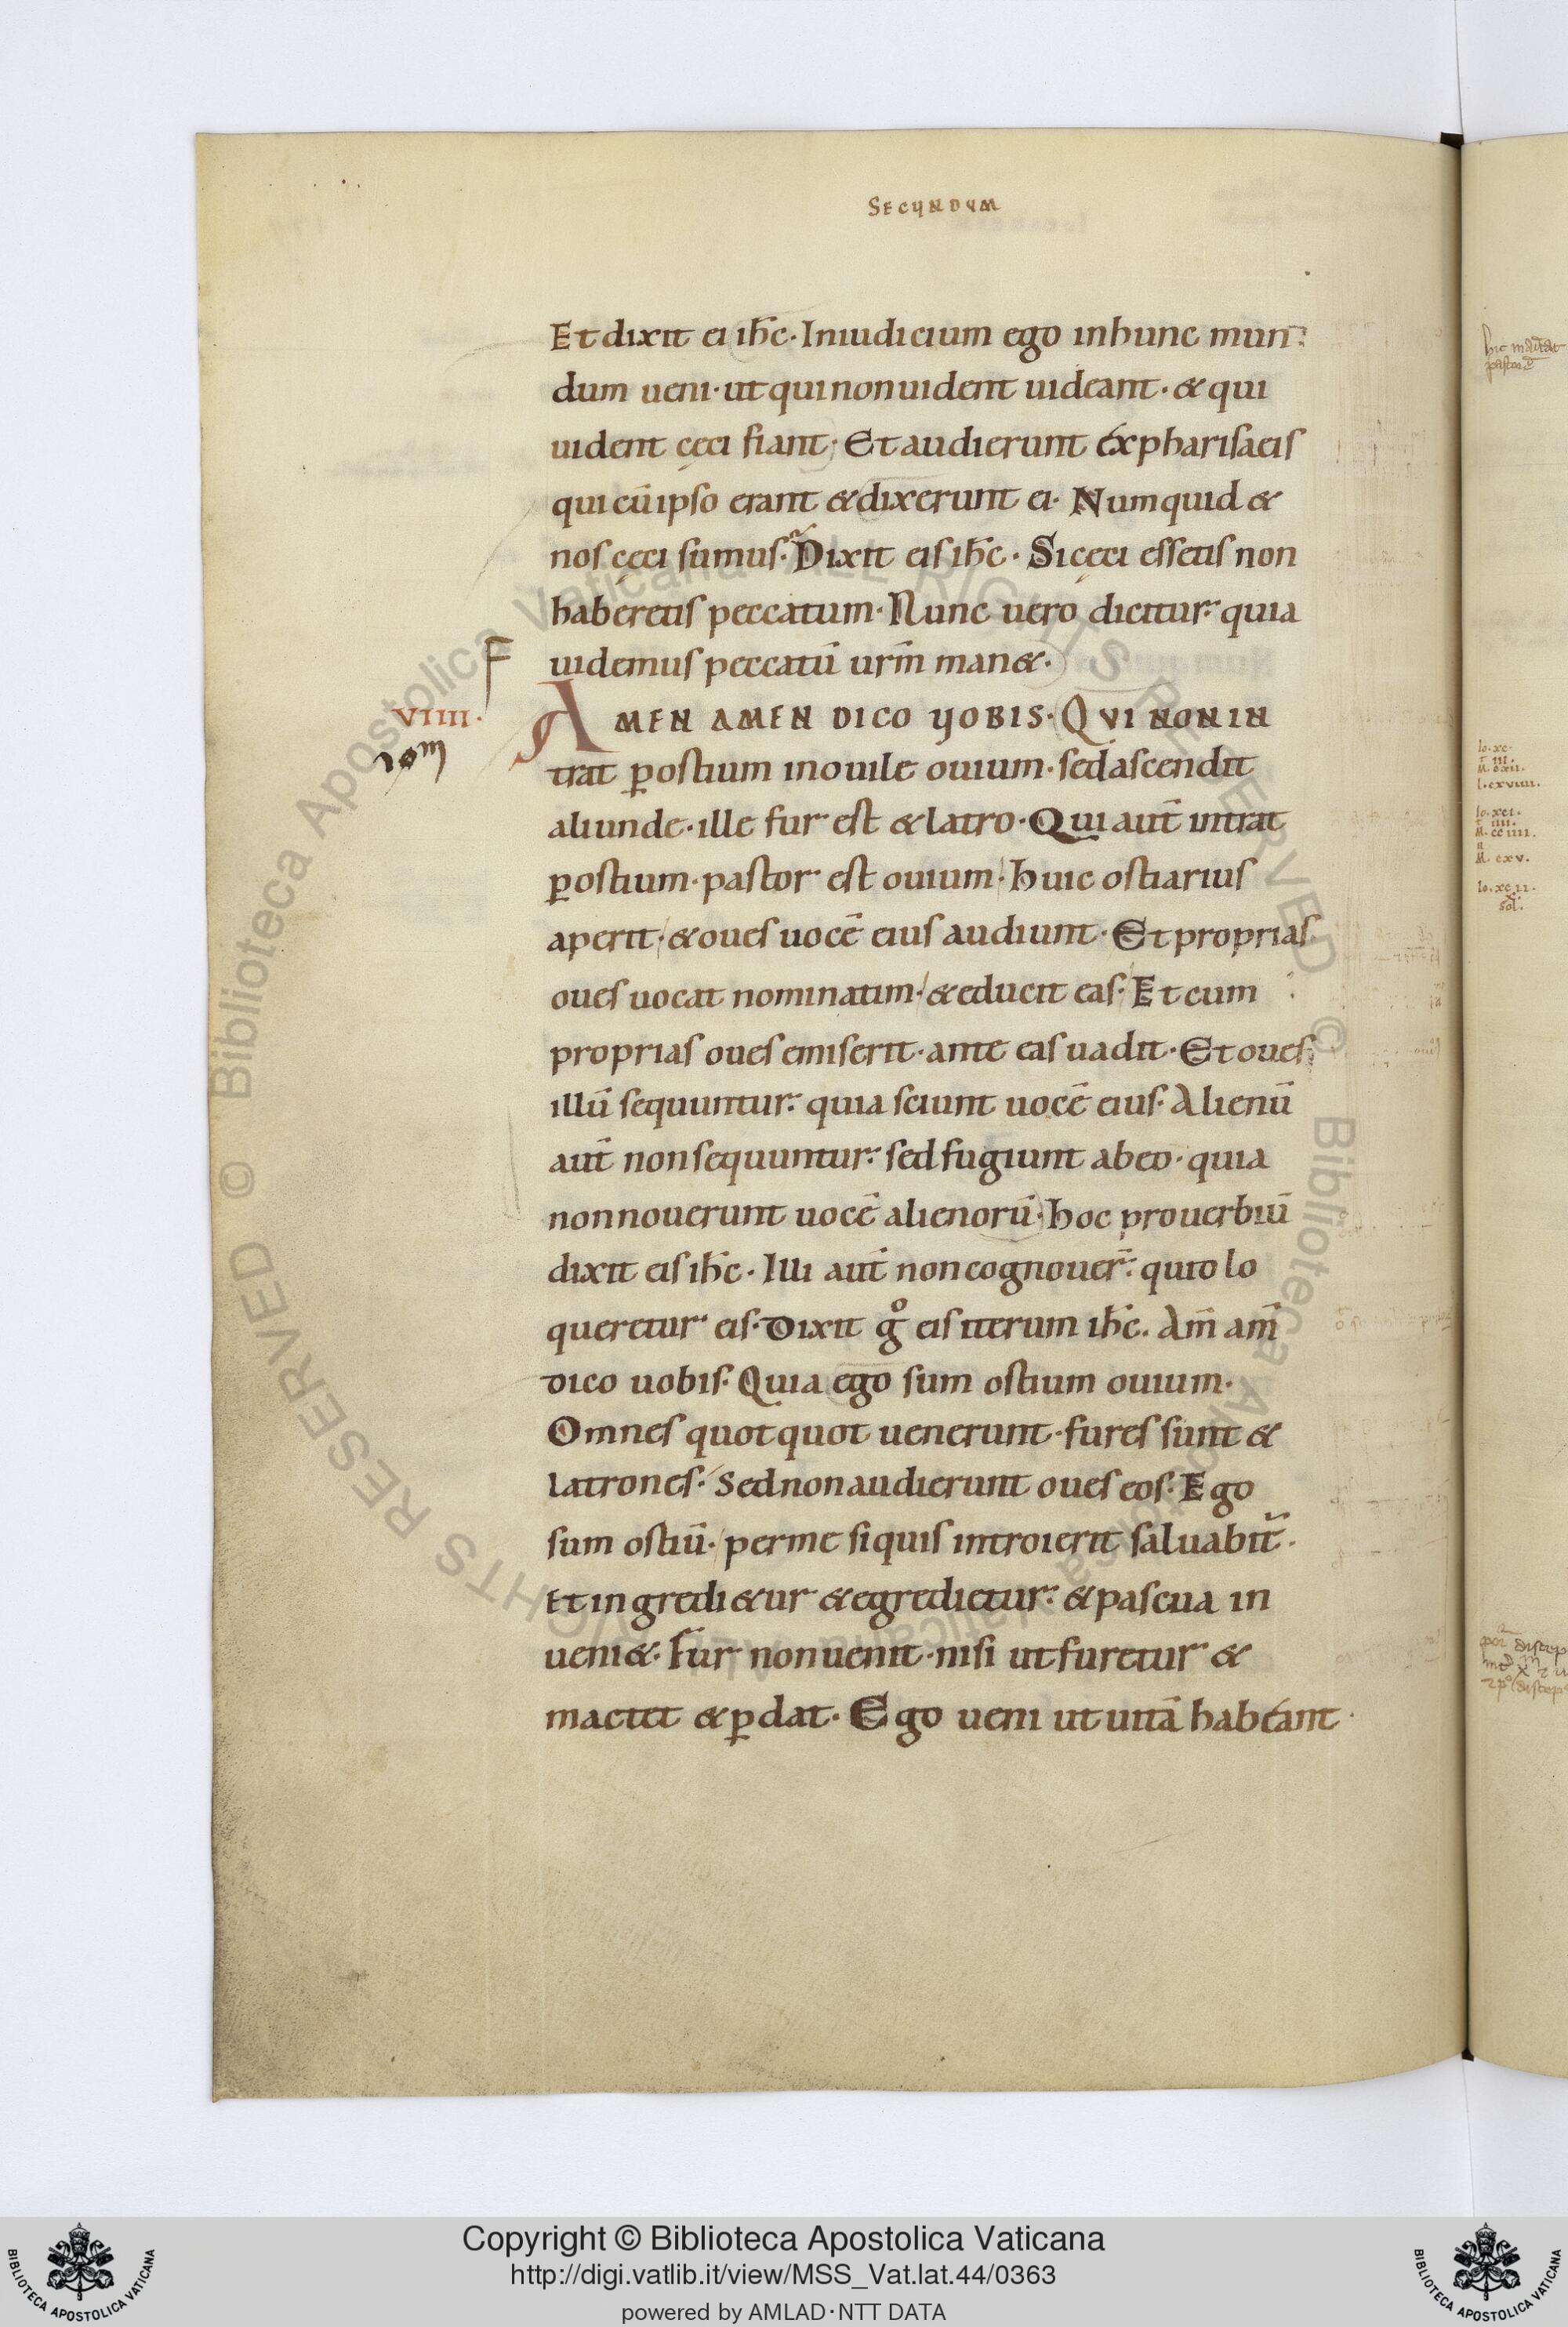 SECUNDUM
Et dixit ei ih̄c· In iudicium ego in hunc mun
dum ueni· ut qui non uident uideant· & qui
uident ęci fiant· Et audierunt éx pharisaeis
qui cū ipso erant & dixerunt ei· Numquid &
nos cęci sumus· Dixit eis ih̄c· Si cęci essetis non
haberetis peccatum· Nunc uero dicitur· quia
F uidemus peccatū urm̄ man&·
VIIII· AMEN AMEN DICO UOBIS· QVI NON IN
trat ꝑ ostium in ouile ouium· sed ascendit
aliunde· ille fur est & latro· Qui aut̄ intrat
ꝑ ostium· pastor est ouium· huic ostiarius
aperit· & oues uocē eius audiunt· Et proprias
oues uocat nominatim· & educit eas· Et cum
proprias oues emiserit· ante eas uadit· Et oues
illū sequuntur· quia sciunt uocē eius· Alienū
aut̄ non sequuntur· sed fugiunt ab eo· quia
non nouerunt uocē alienorū· hoc prouerbiū
dixit eis ih̄c· Illi aut̄ non cognouer̄· quio lo
queretur eis· Dixit gͦ eis iterum ih̄c· Am̄ am̄
dico uobis· Quia ego sum ostium ouium·
Omnes quot quot uenerunt· fures sunt &
latrones· Sed non audierunt oues eos· Ego
sum ostiū· per me si quis introierit saluabit̃·
Et ingredi&ur & egredietur· & pascua in
ueni&· Fur non uenit· nisi ut furetur &
mactet & ꝑdat· Ego ueni ut uitā habeant·
lo·xc·
l·cxviiii·
lo·xci·
M·cciiii·
M·cxv·
lo·xcii·
sol·
Copyright © Biblioteca Apostolica Vaticana
http://digi.vatlib.it/view/MSS_Vat.lat.44/0363
powered by AMLAD·NTT DATA
BIBLIOTECA APOSTOLICA VATICANA
BIBLIOTECA APOSTOLICA VATICANA